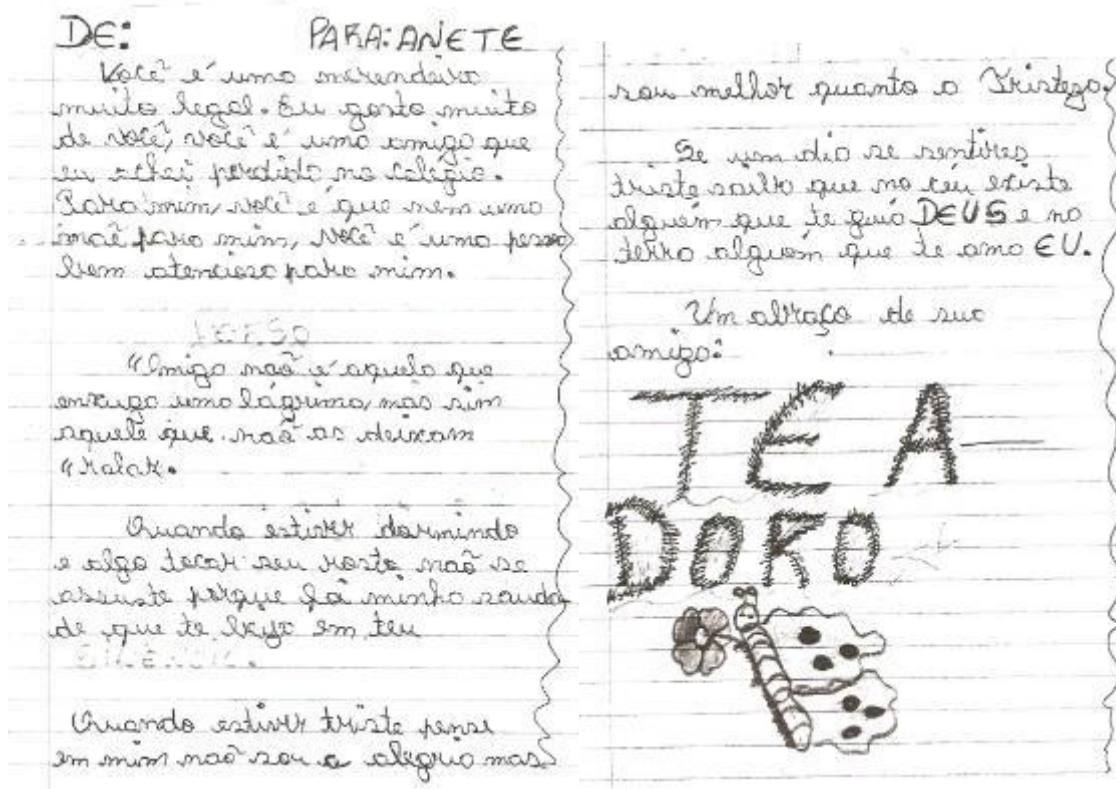 DE: PARA: ANETE
Você é uma merendeira
muito legal. Eu gosto muito
de você, você é uma amiga que
eu achei perdido no colégio.
Para mim, você é que nem uma
maẽ para mim, você é uma pessoa
bem atenciosa para mim.
VERSO
"Amigo naõ é aquela que
enxuga uma lágrima, mas sim
aquele que naõ as deixam
"rolar.
Quando estiver dormindo
e algo tocar seu rosto naõ se
assuste porque é a minha sauda
de que te beija em teu
SILÊNCIO.
Quando estiver triste pense
em mim naõ sou a alegria mas
sou melhor quanto a Tristeza.
Se um dia se sentires
triste saiba que no céu existe
alguém que te guia DEUS e na
terra alguém que te ama EU.
Um abraço de sua
amiga:
TE A
DORO